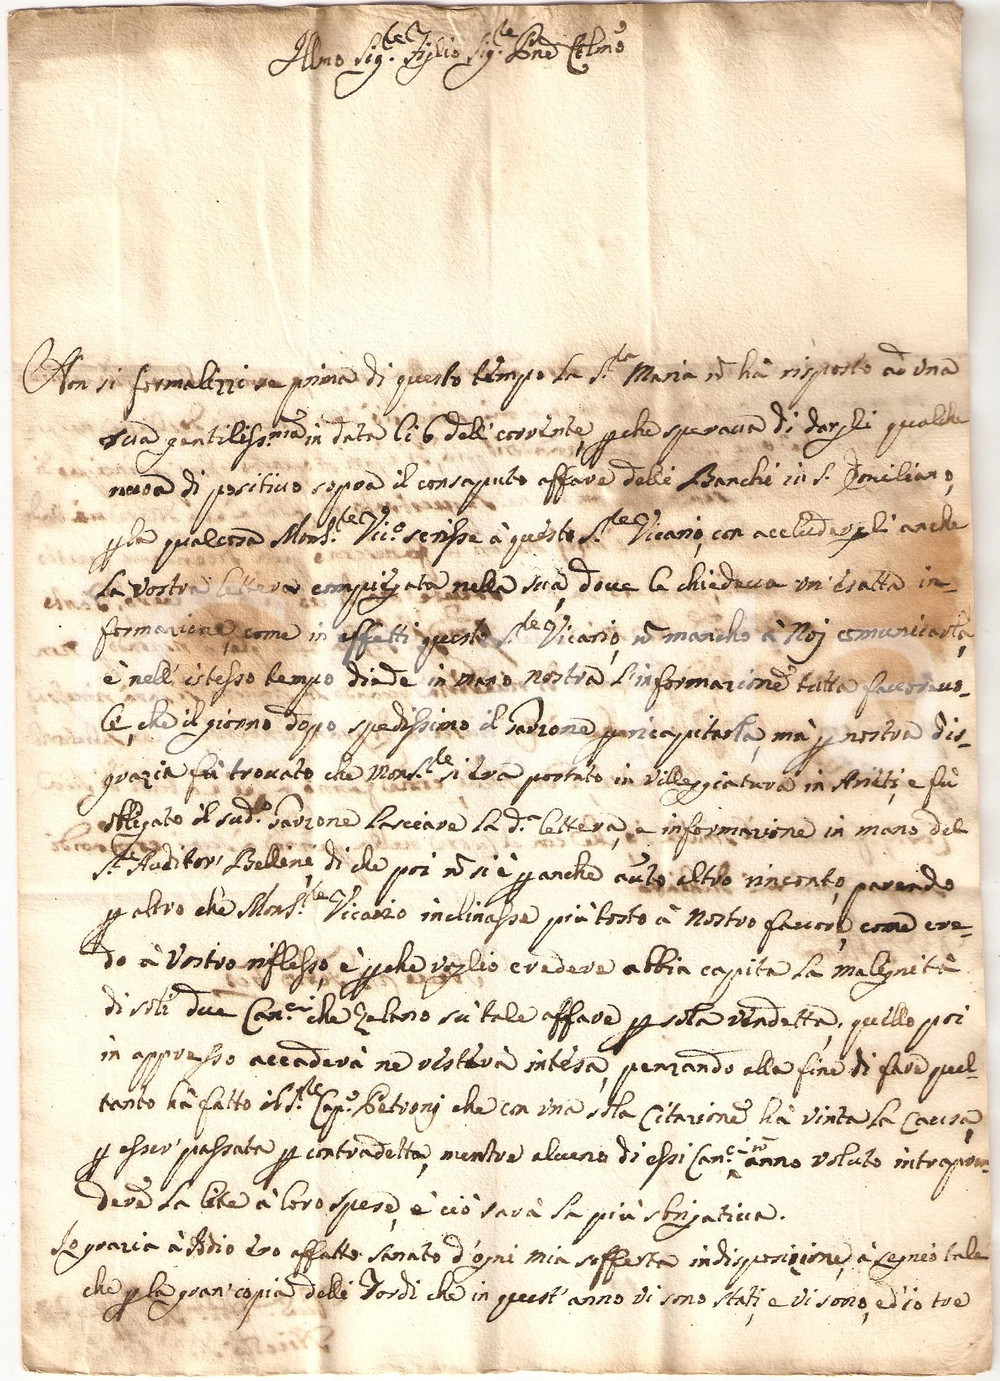 Illmo Sig.re Figlio Sig.re Pne Colmo
Non si formalizzi se prima di questo tempo la S.ra Maria nō hà risposto ad una
sua gentiliss.ma in data li 6 dell'corrente, p̱che sperava di dargli qualche
nuova di positivo sopra il consaputo affare delli Banchi in S. Emiliano,
p̱ la qual cosa Mons.re Vic.o scrisse à questo S.re Vicario, con accludergli anche
la vostra lettera compiegata nella sua, dove le chiedeva un'esatta in-
formazione, come in effetti questo S.re Vicario, nō mancho à Noj comunicarla,
è nell'istesso tempo diede in mano nostra l'informazione tutta favorevo-
le, che il giorno dopo spedissimo il Garzone p̱ ricapitarla, mà p̱ nostra dis-
grazia fù trovato che Mons.re si era portato in villeggiatura in e fù
obligato il sud.o Garzone lasciare la d.a lettera, e informazione in mano del
S.re Auditor' Bellini, di che poi nō si è p̱ anche auto altro rinconto, parendo
p̱ altro che Mons.re Vicario inclinasse più tosto à nostro favore, come cre-
do à Vostro riflesso, è p̱che voglio credere abbia capita la malignità
di soli due Can.ci che zelano sù tale affare p̱ sola vendetta, quello poi
in appresso accaderà ne resterà intesa, penzando alla fine di fare quel-
tanto hà fatto il S.re Cap.o Petronj che con una sola Citazione hà vinta la Causa,
p̱ esser' passata p̱ contradetta, mentre alcuno di essi Can.ci nō anno voluto intrapren-
dere la lite à loro spese, è ciò sarà la più sbrigativa.
Io grazia à Iddio sto affatto sanato d'ogni mia sofferta indisposizione, à segno tale
che p̱ la gran' copia delli Tordi che in quest'anno vi sono stati, e vi sono, ed io tre